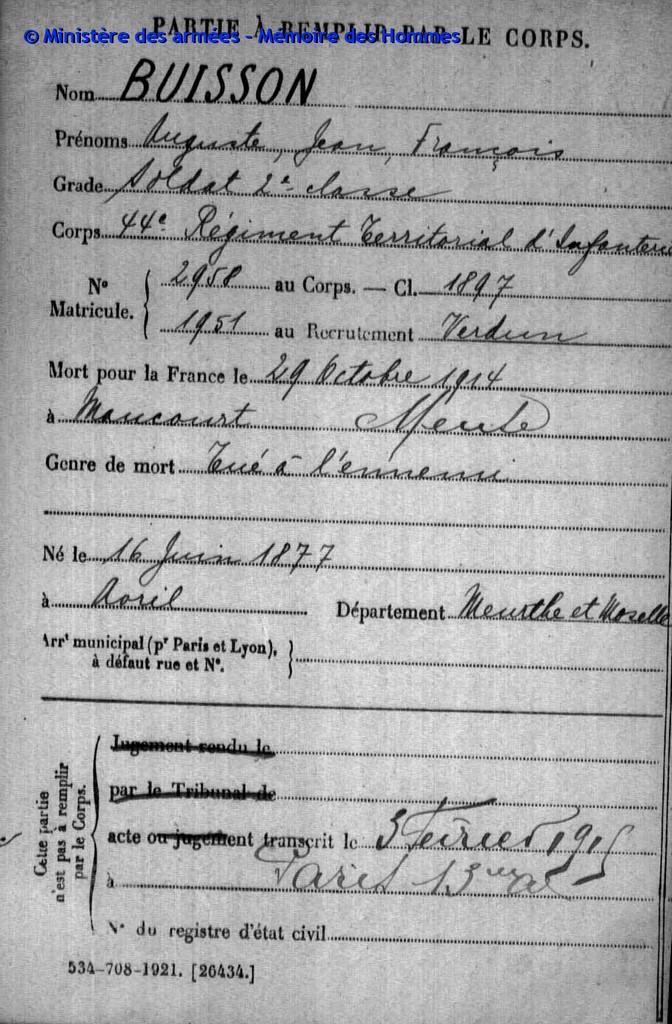 PARTIE À REMPLIR PAR LE CORPS.
© Ministère des armées - Mémoire des Hommes
Nom BUISSON
Prénoms Auguste, Jean, François
Grade Soldat 2e classe
Corps 44e Régiment Territorial d'Infanterie
No Matricule. { 2958 au Corps. — Cl. 1897
1951 au Recrutement Verdun
Mort pour la France le 29 Octobre 1914
à Maucourt Meuse
Genre de mort Tué à l'ennemi
Né le 16 Juin 1877
à Avril Département Meurthe et Moselle
Arrt municipal (pr Paris et Lyon), à défaut rue et No. }
Cette partie n'est pas à remplir par le Corps.
Jugement rendu le
par le Tribunal de
acte ou jugement transcrit le 3 Février 1915
à Paris 13e
No du registre d'état civil
534-708-1921. [26434.]